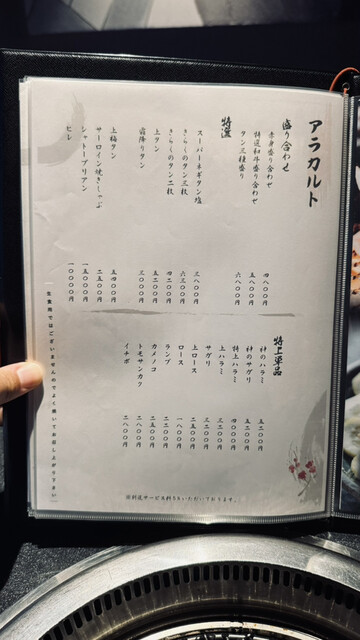 アラカルト
盛り合わせ
赤身盛り合わせ 四八〇〇円
特選和牛盛り合わせ 五八〇〇円
タン三種盛り 六八〇〇円
特選
スーパーネギタン塩 三八〇〇円
きらくのタン三枚 六三〇〇円
きらくのタン二枚 四二〇〇円
上タン 五二〇〇円
霜降りタン 三〇〇〇円
上極タン 五四〇〇円
サーロイン焼きしゃぶ 二五〇〇円
シャトーブリアン 一五〇〇〇円
ヒレ 一〇〇〇〇円
特上単品
神のハラミ 五二〇〇円
神のサガリ 五二〇〇円
特上ハラミ 四〇〇〇円
上ハラミ 三二〇〇円
サガリ 三二〇〇円
上ロース 二五〇〇円
ロース 一八〇〇円
ランプ 二二〇〇円
カメノコ 二五〇〇円
トモサンカク 二八〇〇円
イチボ 二八〇〇円
生食用ではございませんのでよく焼いてお召し上がり下さい
※別途サービス料5%いただいております。